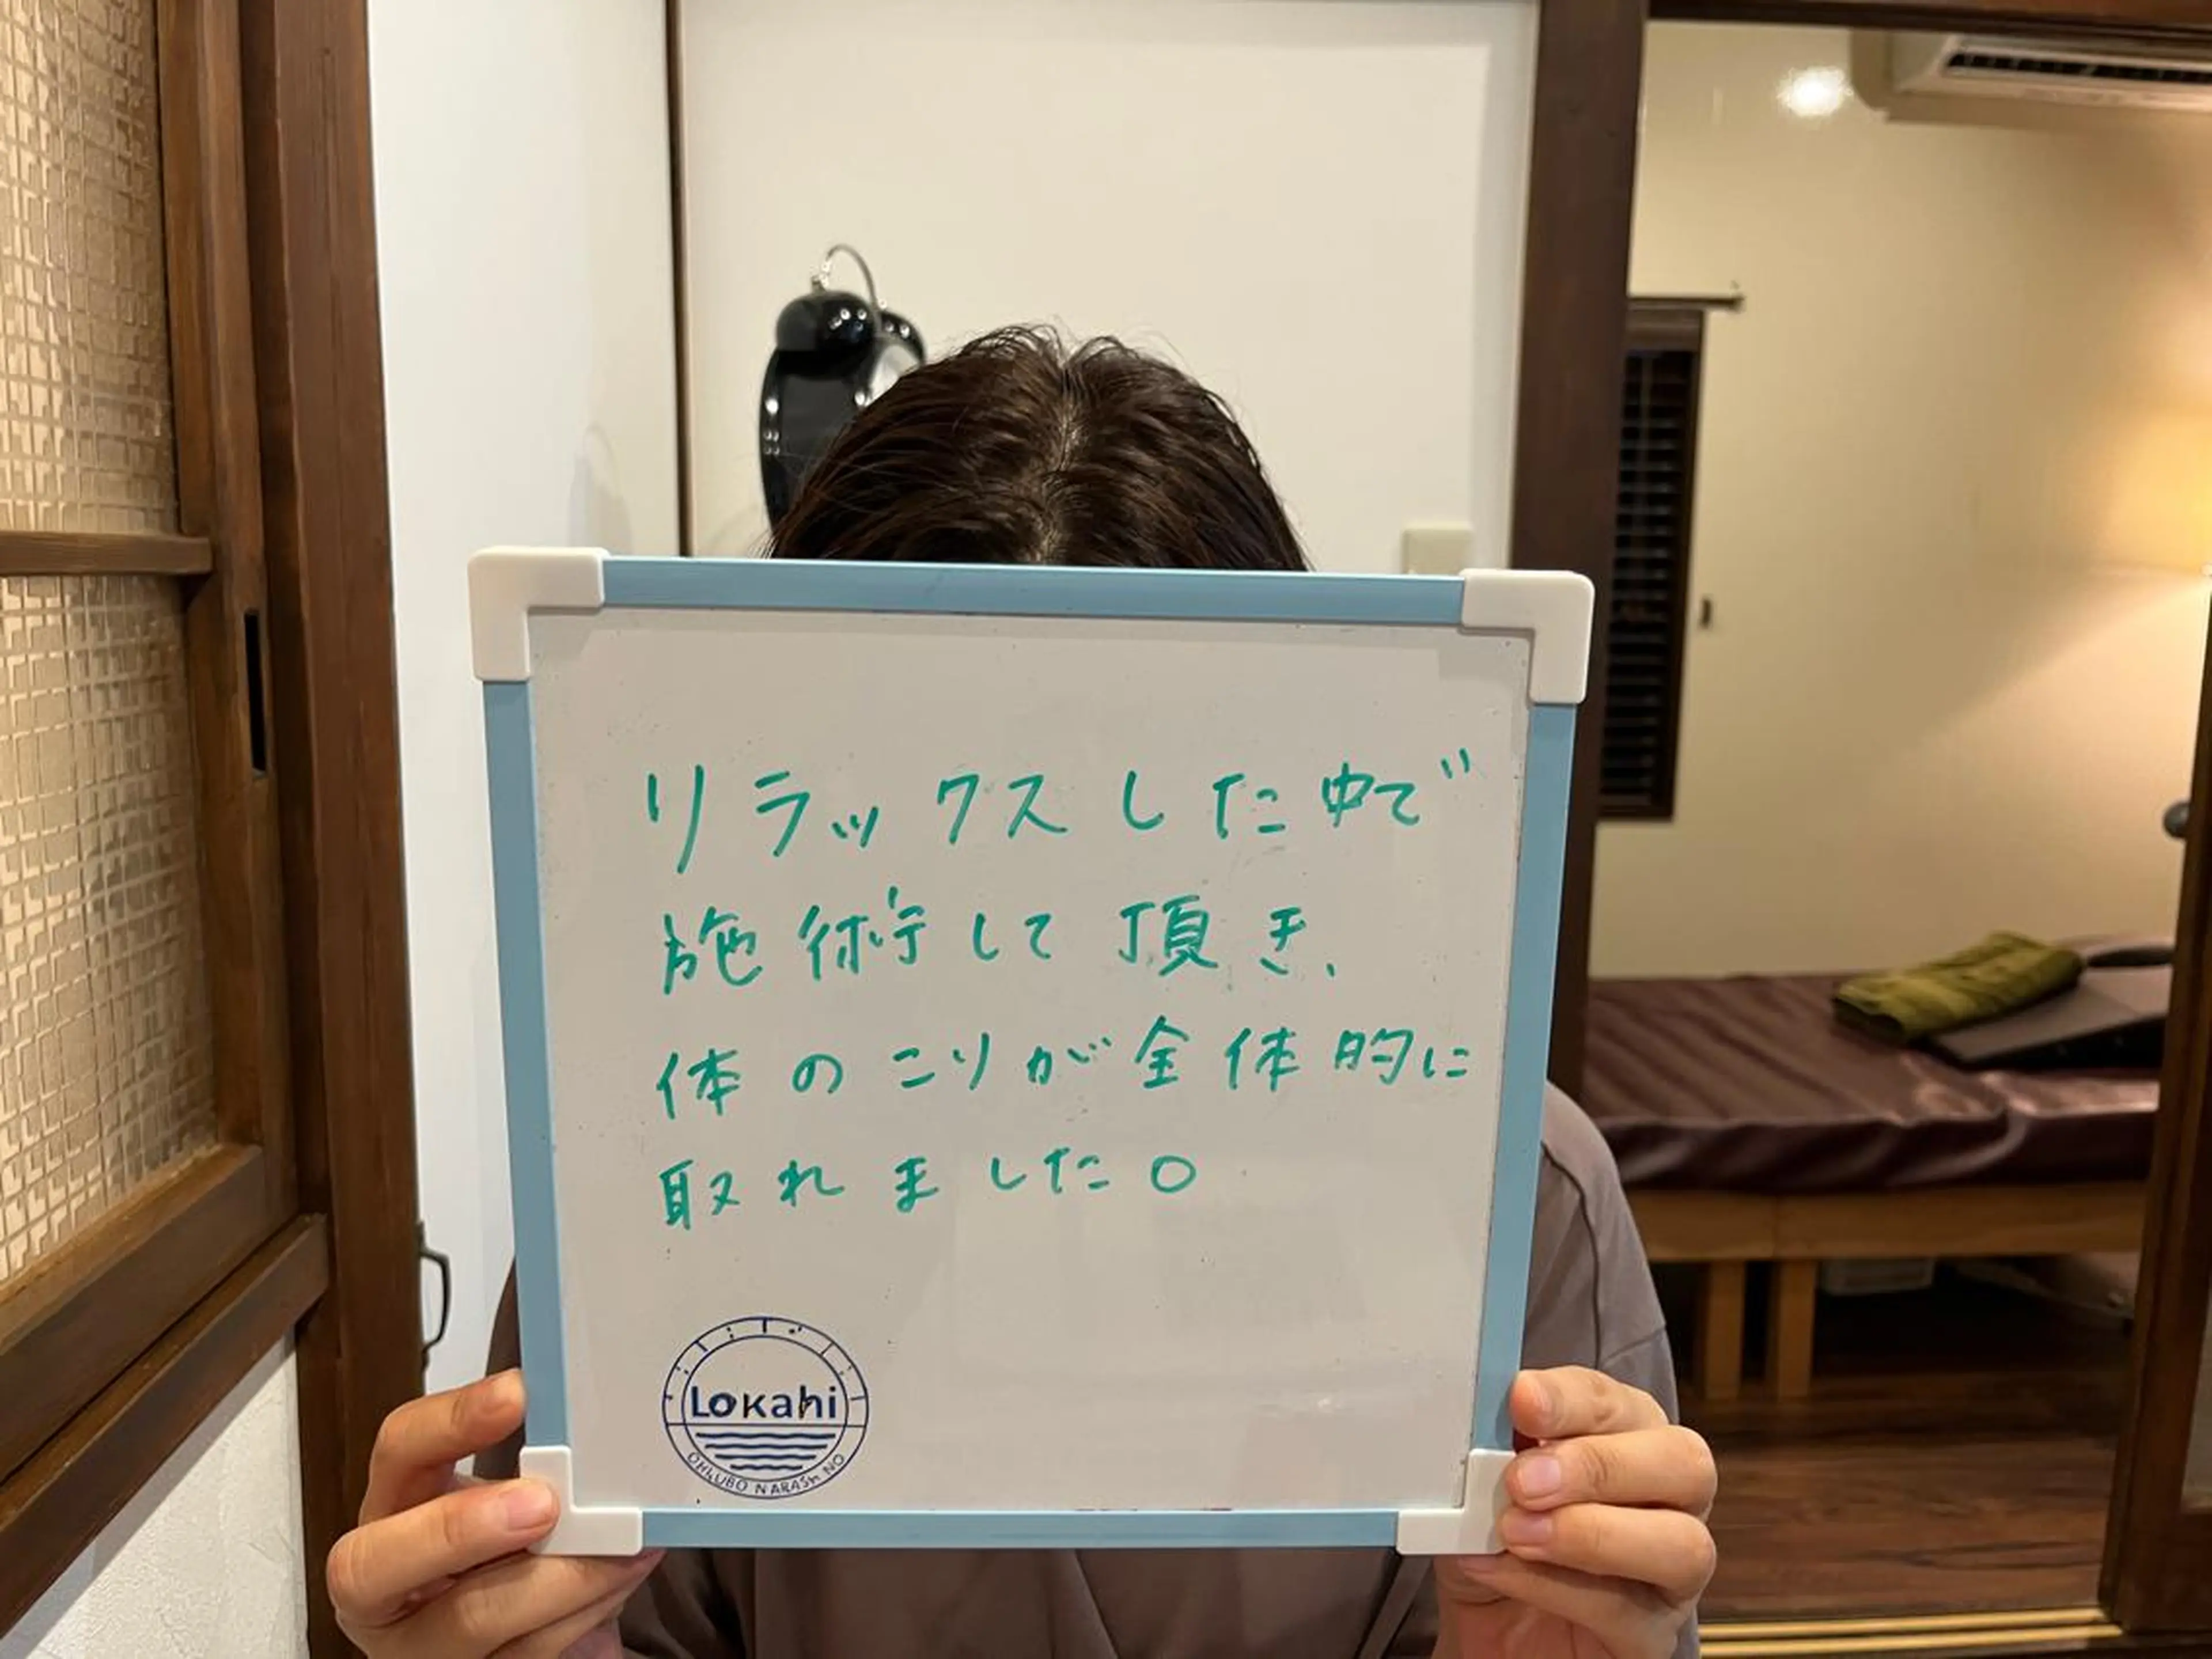 リラックスした中で
施術して頂き、
体のこりが全体的に
取れました。
Lokahi